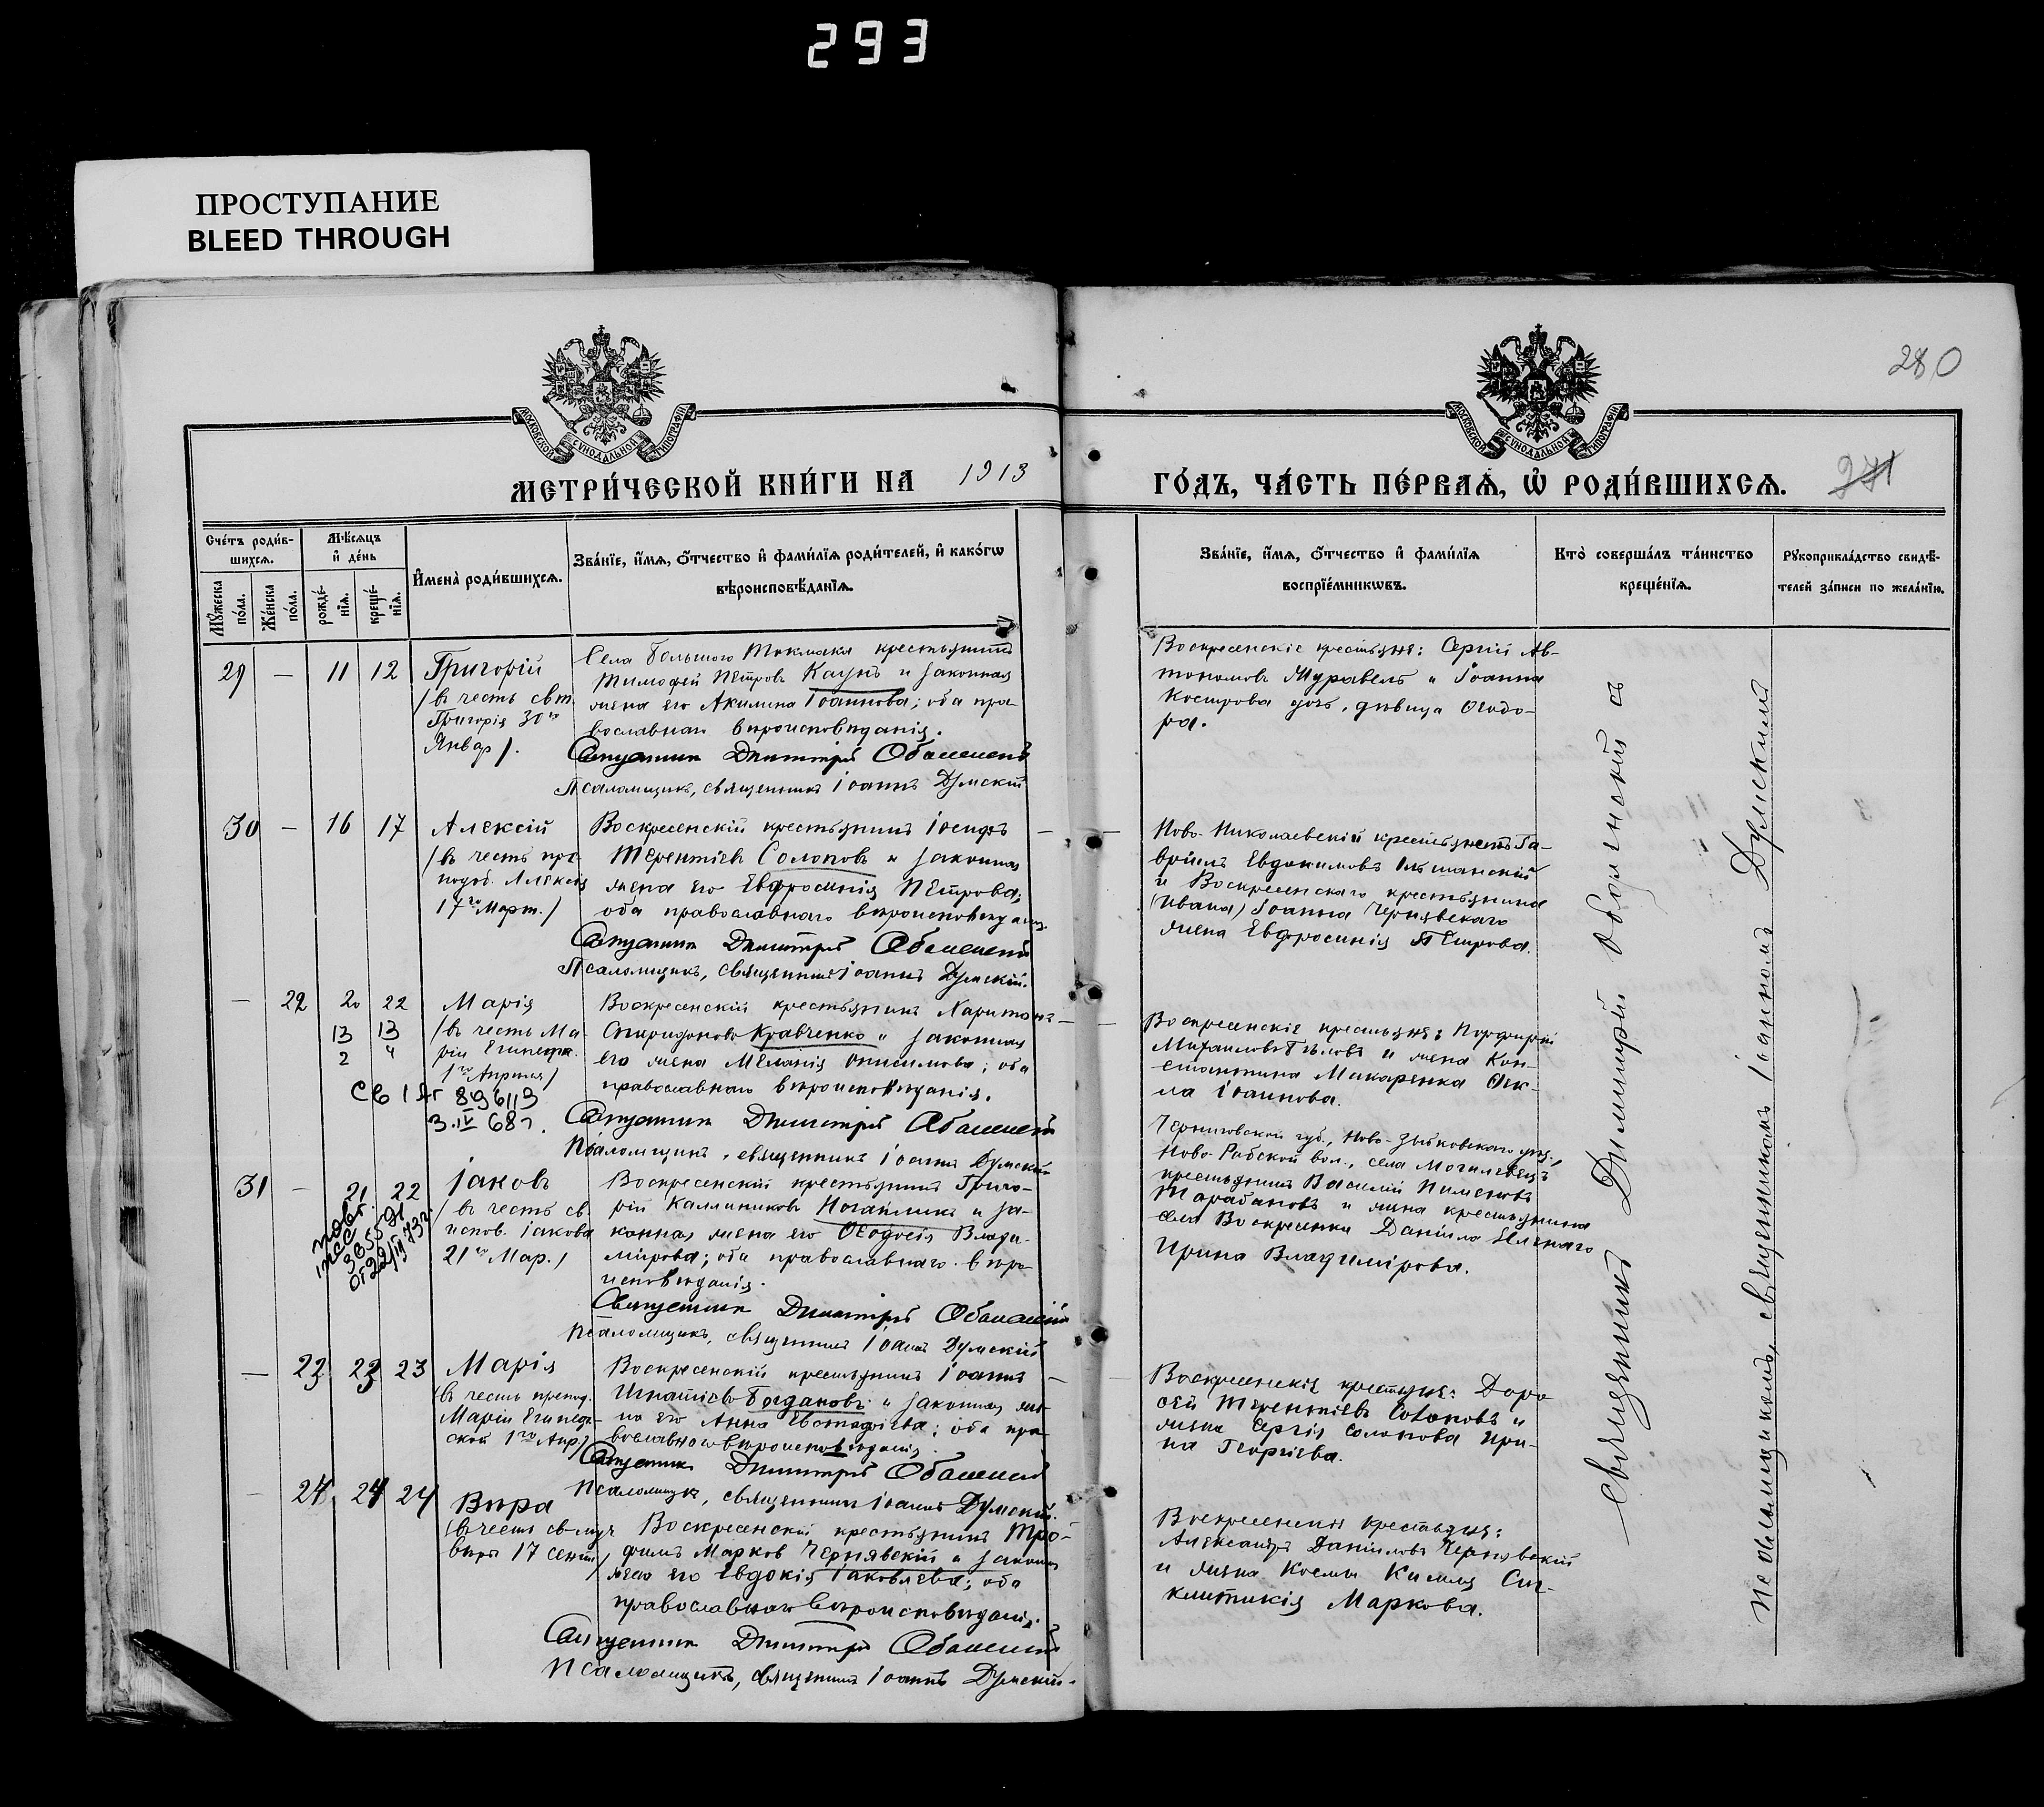 293
ПРОСТУПАНИЕ
BLEED THROUGH
280
МОСКОВСКОЙ СУНОДАЛЬНОЙ ТИПОГРАФІИ
МОСКОВСКОЙ СУНОДАЛЬНОЙ ТИПОГРАФІИ
МЕТРИ́ЧЕСКОЙ КНИ́ГИ НА 1913
ГО́ДЪ, ЧА́СТЬ ПЕ́РВАѦ, Ѡ РОДИ́ВШИХСѦ.
Сче́тъ роди́в-
шихся.
Мѣ́сяцъ
и҆ де́нь
Мꙋ́жеска
по́ла.
Же́нска
по́ла.
рожде́-
нія.
креще́-
нія.
И҆мена̀ роди́вшихся.
Зва́ніе, и҆́мя, ѻ҆́тчество и҆ фами́лія роди́телей, и҆ како́гѡ
вѣроисповѣ́данія.
Зва́ніе, и҆́мя, ѻ҆́тчество и҆ фами́лія
воспріе́мникѡвъ.
Кто̀ соверша́лъ та́инство
креще́нія.
Рꙋкоприкла́дство свидѣ́-
телей за́писи по жела́нію.
29 — 11 12 Григорій
(въ честь свт.
Григорія 30го
Январ).
Села Большого Токмака крестьянинъ
Тимофей Петровъ Каунъ и законная
жена его Акилина Іоаннова; оба пра-
вославнаго вѣроисповѣданія.
Священникъ Димитрій
Псаломщикъ, священникъ Іоаннъ Думскій
Воскресенскіе крестьяне: Сергій Ав-
тономовъ Журавель и Іоанна
Кострова дочь, дѣвица Ѳеодо-
ра.
30 — 16 17 Алексій
(въ честь пре-
подоб. Алексія
17го Март.)
Воскресенскій крестьянинъ Іосифъ
Терентіевъ Солоповъ и законная
жена его Евфросинія Петрова;
оба православнаго вѣроисповѣданія.
Священникъ Димитрій
Псаломщикъ, священникъ Іоаннъ Думскій.
Ново-Николаевскій крестьянинъ Га-
вріилъ Евдокимовъ Ольшанскій
и Воскресенскаго крестьянина
(Ивана) Іоанна Чернявскаго
жена Евфросинія Петрова.
— 22 20 22 Марія
13 13
2 "
(въ честь Ма-
ріи Египетск.
1го Апрѣля)
Св I Яг 896113
3.IV 68г.
Воскресенскій крестьянинъ Харитонъ
Спиридоновъ Кравченко и законная
его жена Меланія Онисимова; оба
православнаго вѣроисповѣданія.
Священникъ Димитрій
Псаломщикъ, священникъ Іоаннъ Думскій
Воскресенскіе крестьяне: Порфирій
Михаиловъ Бѣловъ и жена Кон-
стантина Макаренка Ѳек-
ла Іоаннова.
31 — 21 22 Іаковъ
(въ честь св.
испов. Іакова
21го Мар.)
повт.
385591
от 22/IV 73г.
Воскресенскій крестьянинъ Григо-
рій Каллиниковъ Ногайликъ и за-
конная жена его Ѳеодосія Влади-
мірова; оба православнаго вѣро-
исповѣданія.
Священникъ Димитрій
Псаломщикъ, священникъ Іоаннъ Думскій
Черниговской губ., Ново-Зыбковскаго уѣз.,
Ново-Робской вол., села Могилевецъ
крестьянинъ Василій Пименовъ
Тарабановъ и жена крестьянина
села Воскресенки Даніила
Ирина Владимірова.
— 23 23 23 Марія
(въ честь препод.
Маріи Египет-
ской 1го Апр)
Воскресенскій крестьянинъ Іоаннъ
Игнатіевъ Богдановъ и законная же-
на его Анна Евстафіева; оба пра-
вославнаго вѣроисповѣданія.
Священникъ Димитрій
Псаломщикъ, священникъ Іоаннъ Думскій.
Воскресенскіе крестьяне: Доро-
ѳей Терентіевъ Солоповъ и
жена Сергія Солопова Ири-
на Георгіева.
— 24 24 24 Вѣра
(въ честь св-муч
Вѣры 17 сент.)
Воскресенскій крестьянинъ Тро-
фимъ Марковъ Чернявскій и законная
жена его Евдокія Іаковлева; оба
православнаго вѣроисповѣданія.
Священникъ Димитрій
Псаломщикъ, священникъ Іоаннъ Думскій.
Воскресенскіе крестьяне:
Александръ Даніиловъ Чернявскій
и жена Космы Кисиля Син-
клитикія Маркова.
Священникъ Димитрій съ
псаломщикомъ, священникомъ Іоанномъ Думскимъ